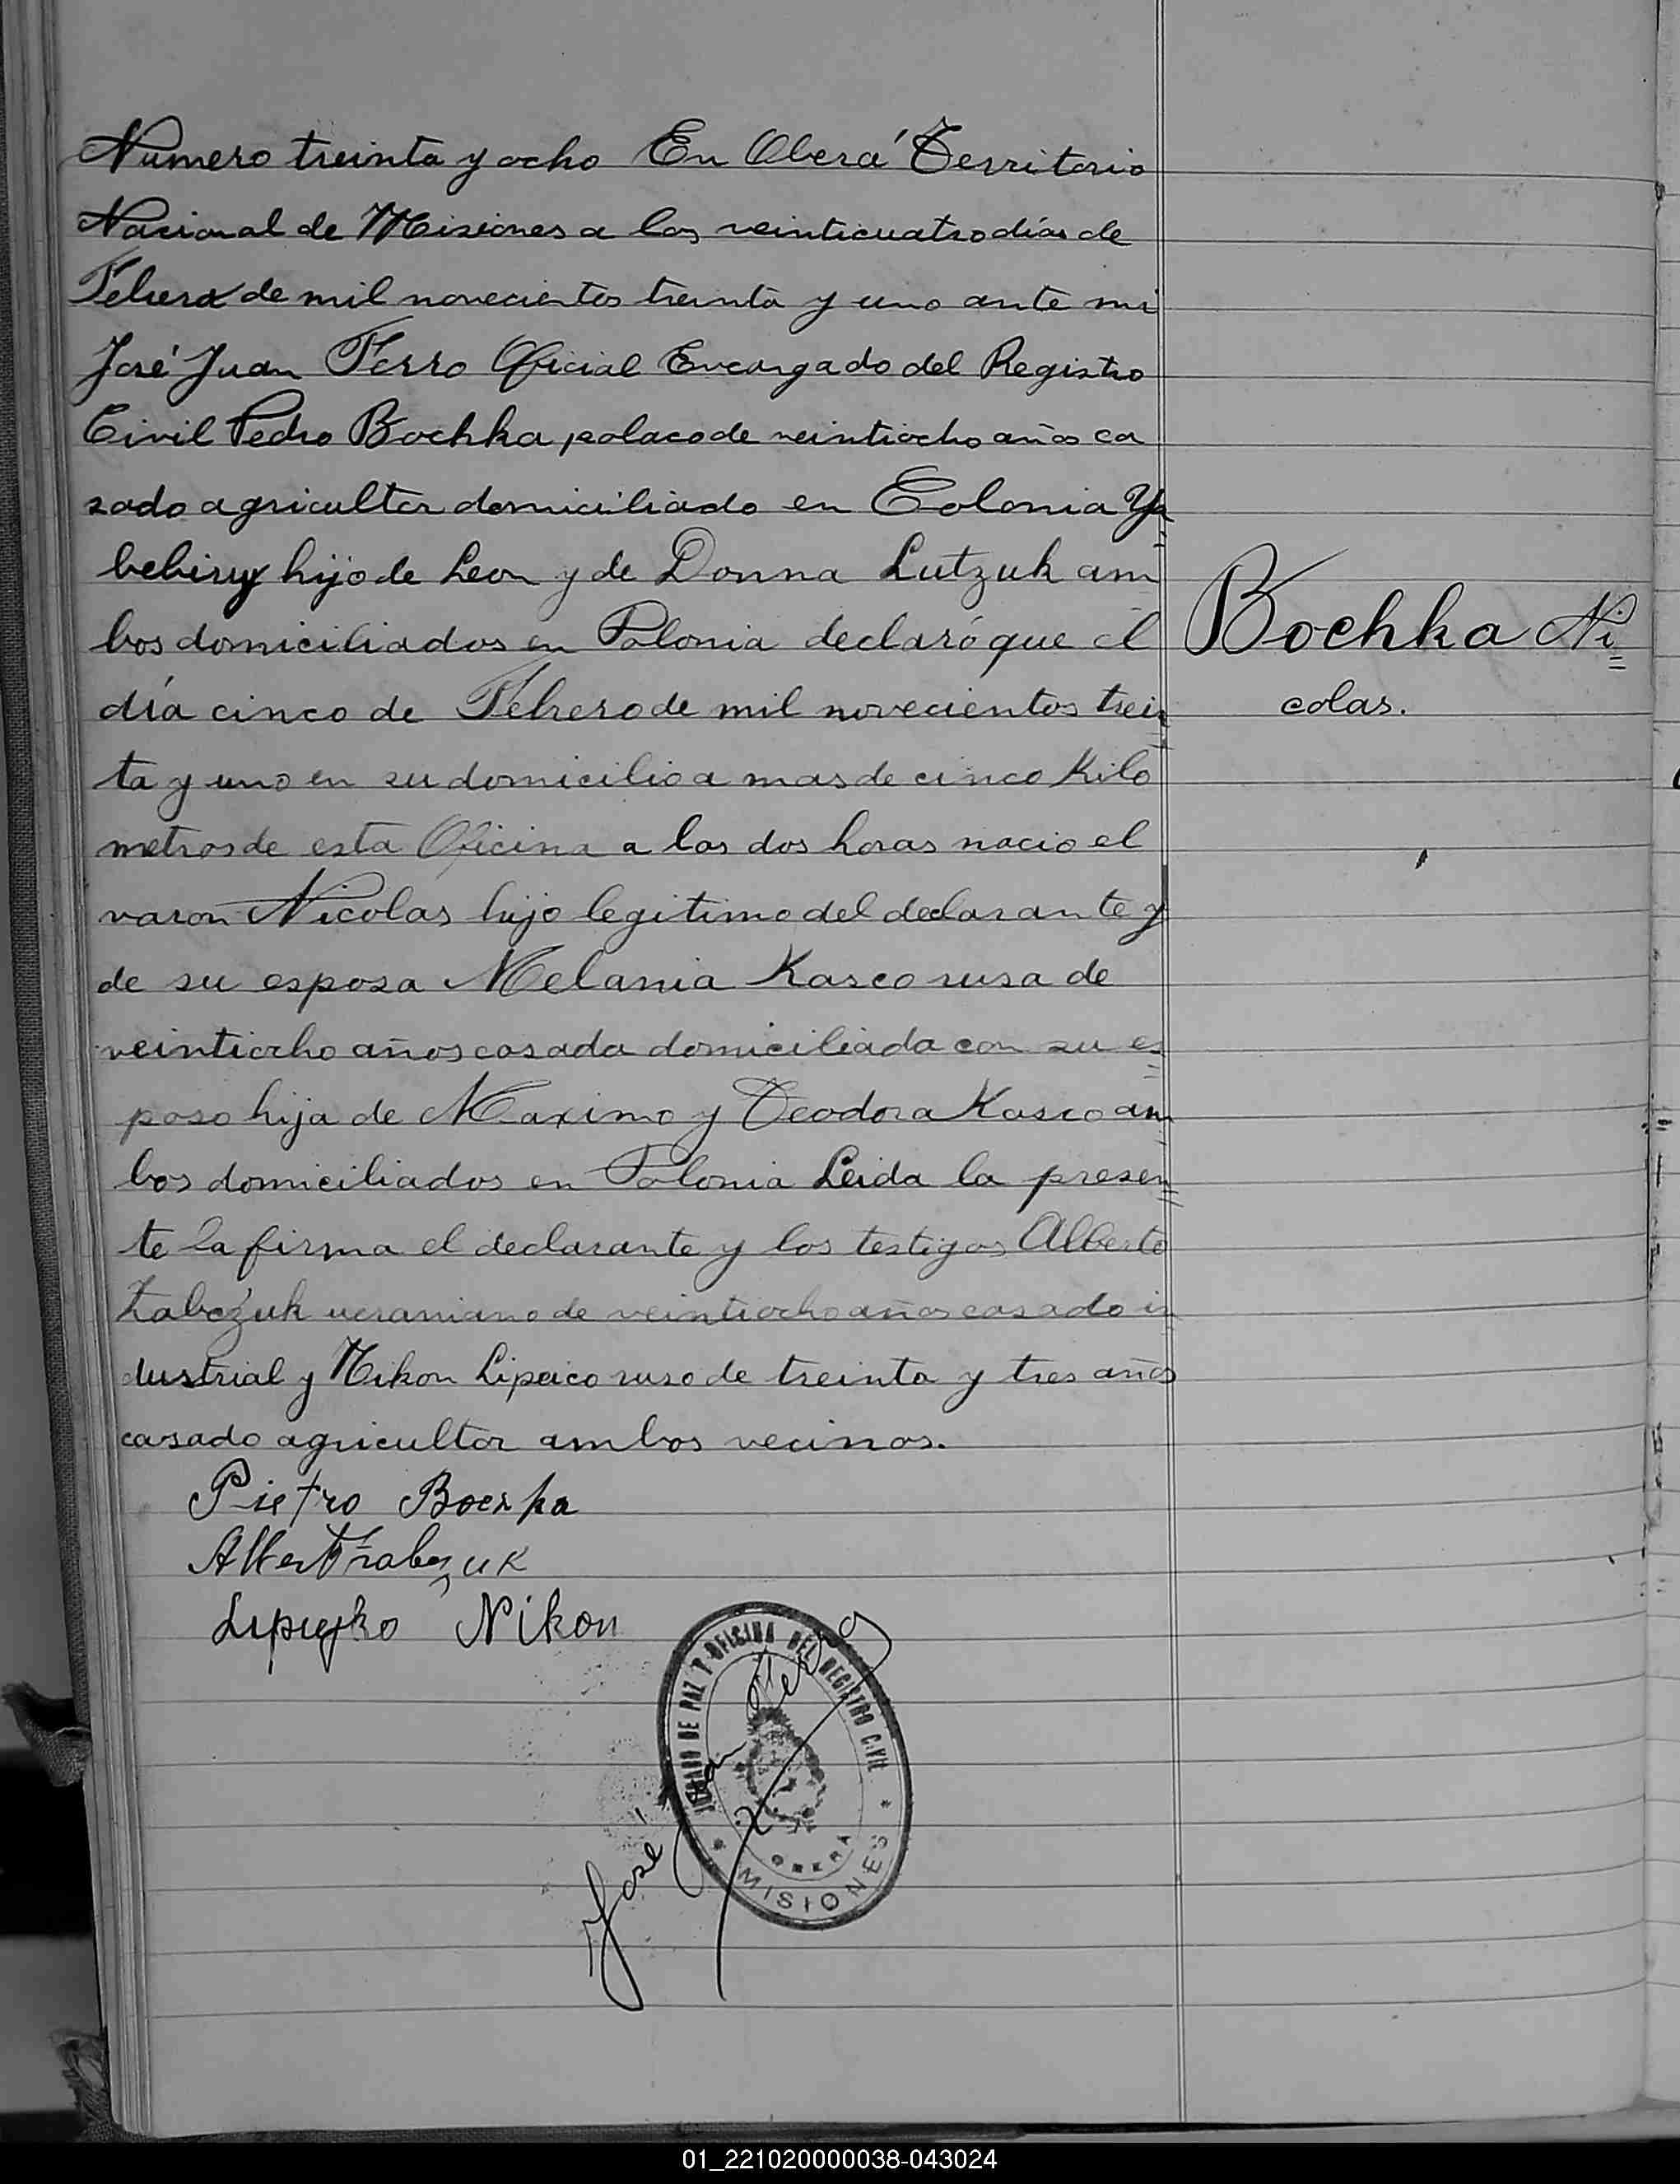 Numero treinta y ocho En Oberá Territorio
Nacional de Misiones a los veinticuatro días de
Febrero de mil novecientos treinta y uno ante mi
José Juan Ferro Oficial Encargado del Registro
Civil Pedro Bochka, polaco de veintiocho años ca
sado agricultor domiciliado en Colonia Ya
bebiry hijo de Leon y de Donna Lutzuk am
bos domiciliados en Polonia declaró que el
día cinco de Febrero de mil novecientos trein
ta y uno en su domicilio a mas de cinco Kilo
metros de esta Oficina a las dos horas nacio el
varon Nicolas hijo legitimo del declarante y
de su esposa Melania Kasco rusa de
veintiocho años casada domiciliada con su es
poso hija de Maximo y Teodora Kasco am
bos domiciliados en Polonia Leida la presen
te la firma el declarante y los testigos Alberto
Zabczuk ucraniano de veintiocho años casado in
dustrial y Nikon Lipeico ruso de treinta y tres años
casado agricultor ambos vecinos.
Bochka Ni
colas.
Pietro
Nikon
José Juan Ferro
JUZGADO DE PAZ Y OFICINA DEL REGISTRO CIVIL
OBERA
* MISIONES *
01_221020000038-043024